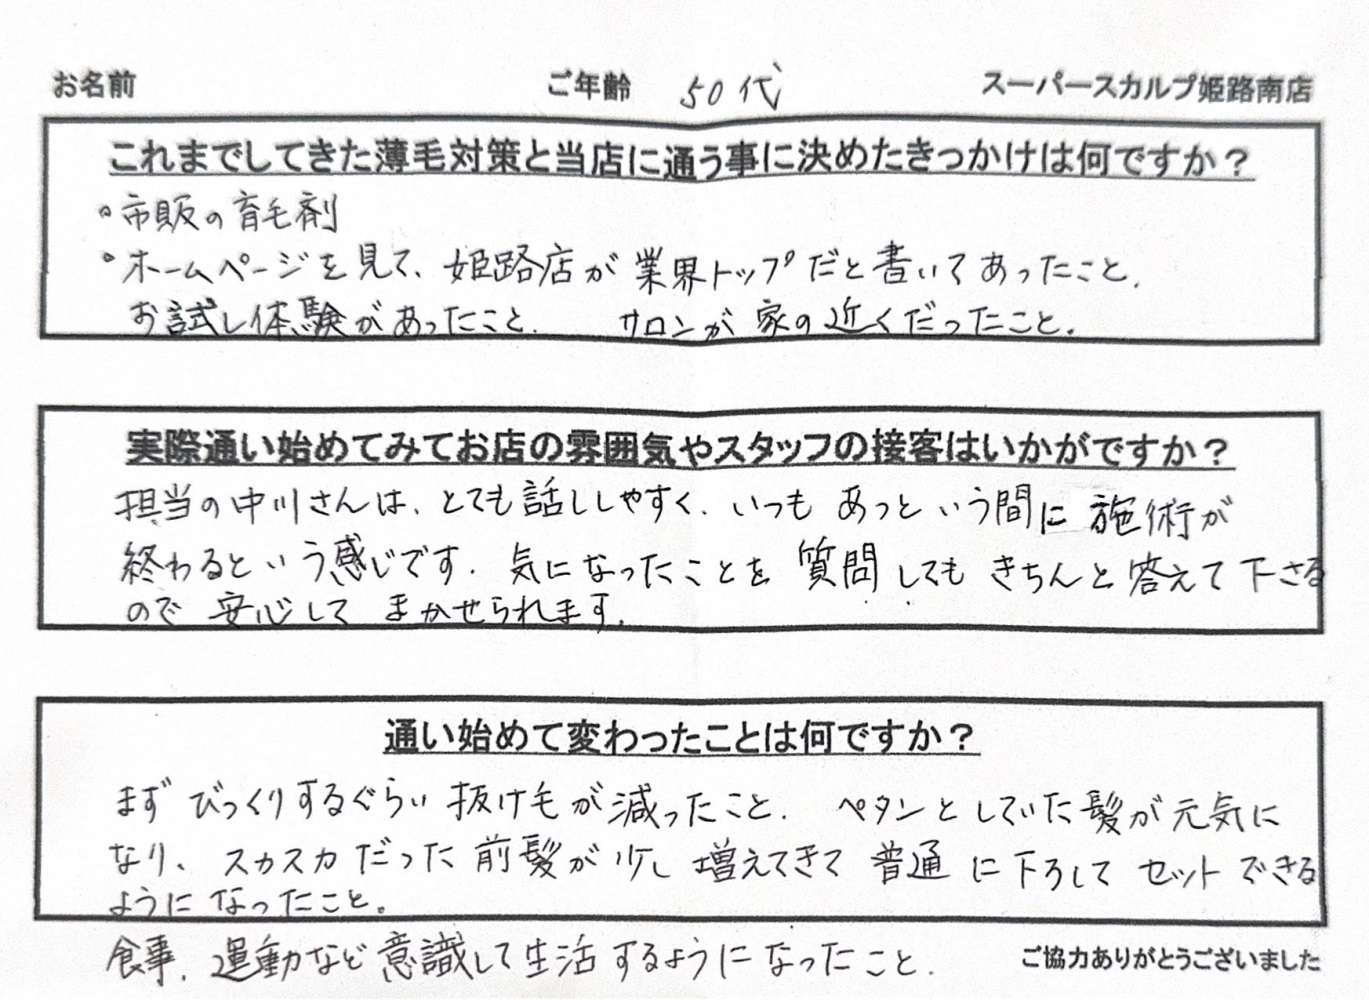 お名前 ご年齢 50代 スーパースカルプ姫路南店
これまでしてきた薄毛対策と当店に通う事に決めたきっかけは何ですか？
・市販の育毛剤
・ホームページを見て、姫路店が業界トップだと書いてあったこと、
お試し体験があったこと、 サロンが家の近くだったこと。
実際通い始めてみてお店の雰囲気やスタッフの接客はいかがですか？
担当の中川さんは、とても話ししやすく、いつもあっという間に施術が
終わるという感じです。気になったことを質問してもきちんと答えて下さる
ので安心してまかせられます。
通い始めて変わったことは何ですか？
まずびっくりするぐらい抜け毛が減ったこと、ペタンとしていた髪が元気に
なり、スカスカだった前髪が少し増えてきて普通に下ろしてセットできる
ようになったこと。
食事、運動など意識して生活するようになったこと、 ご協力ありがとうございました